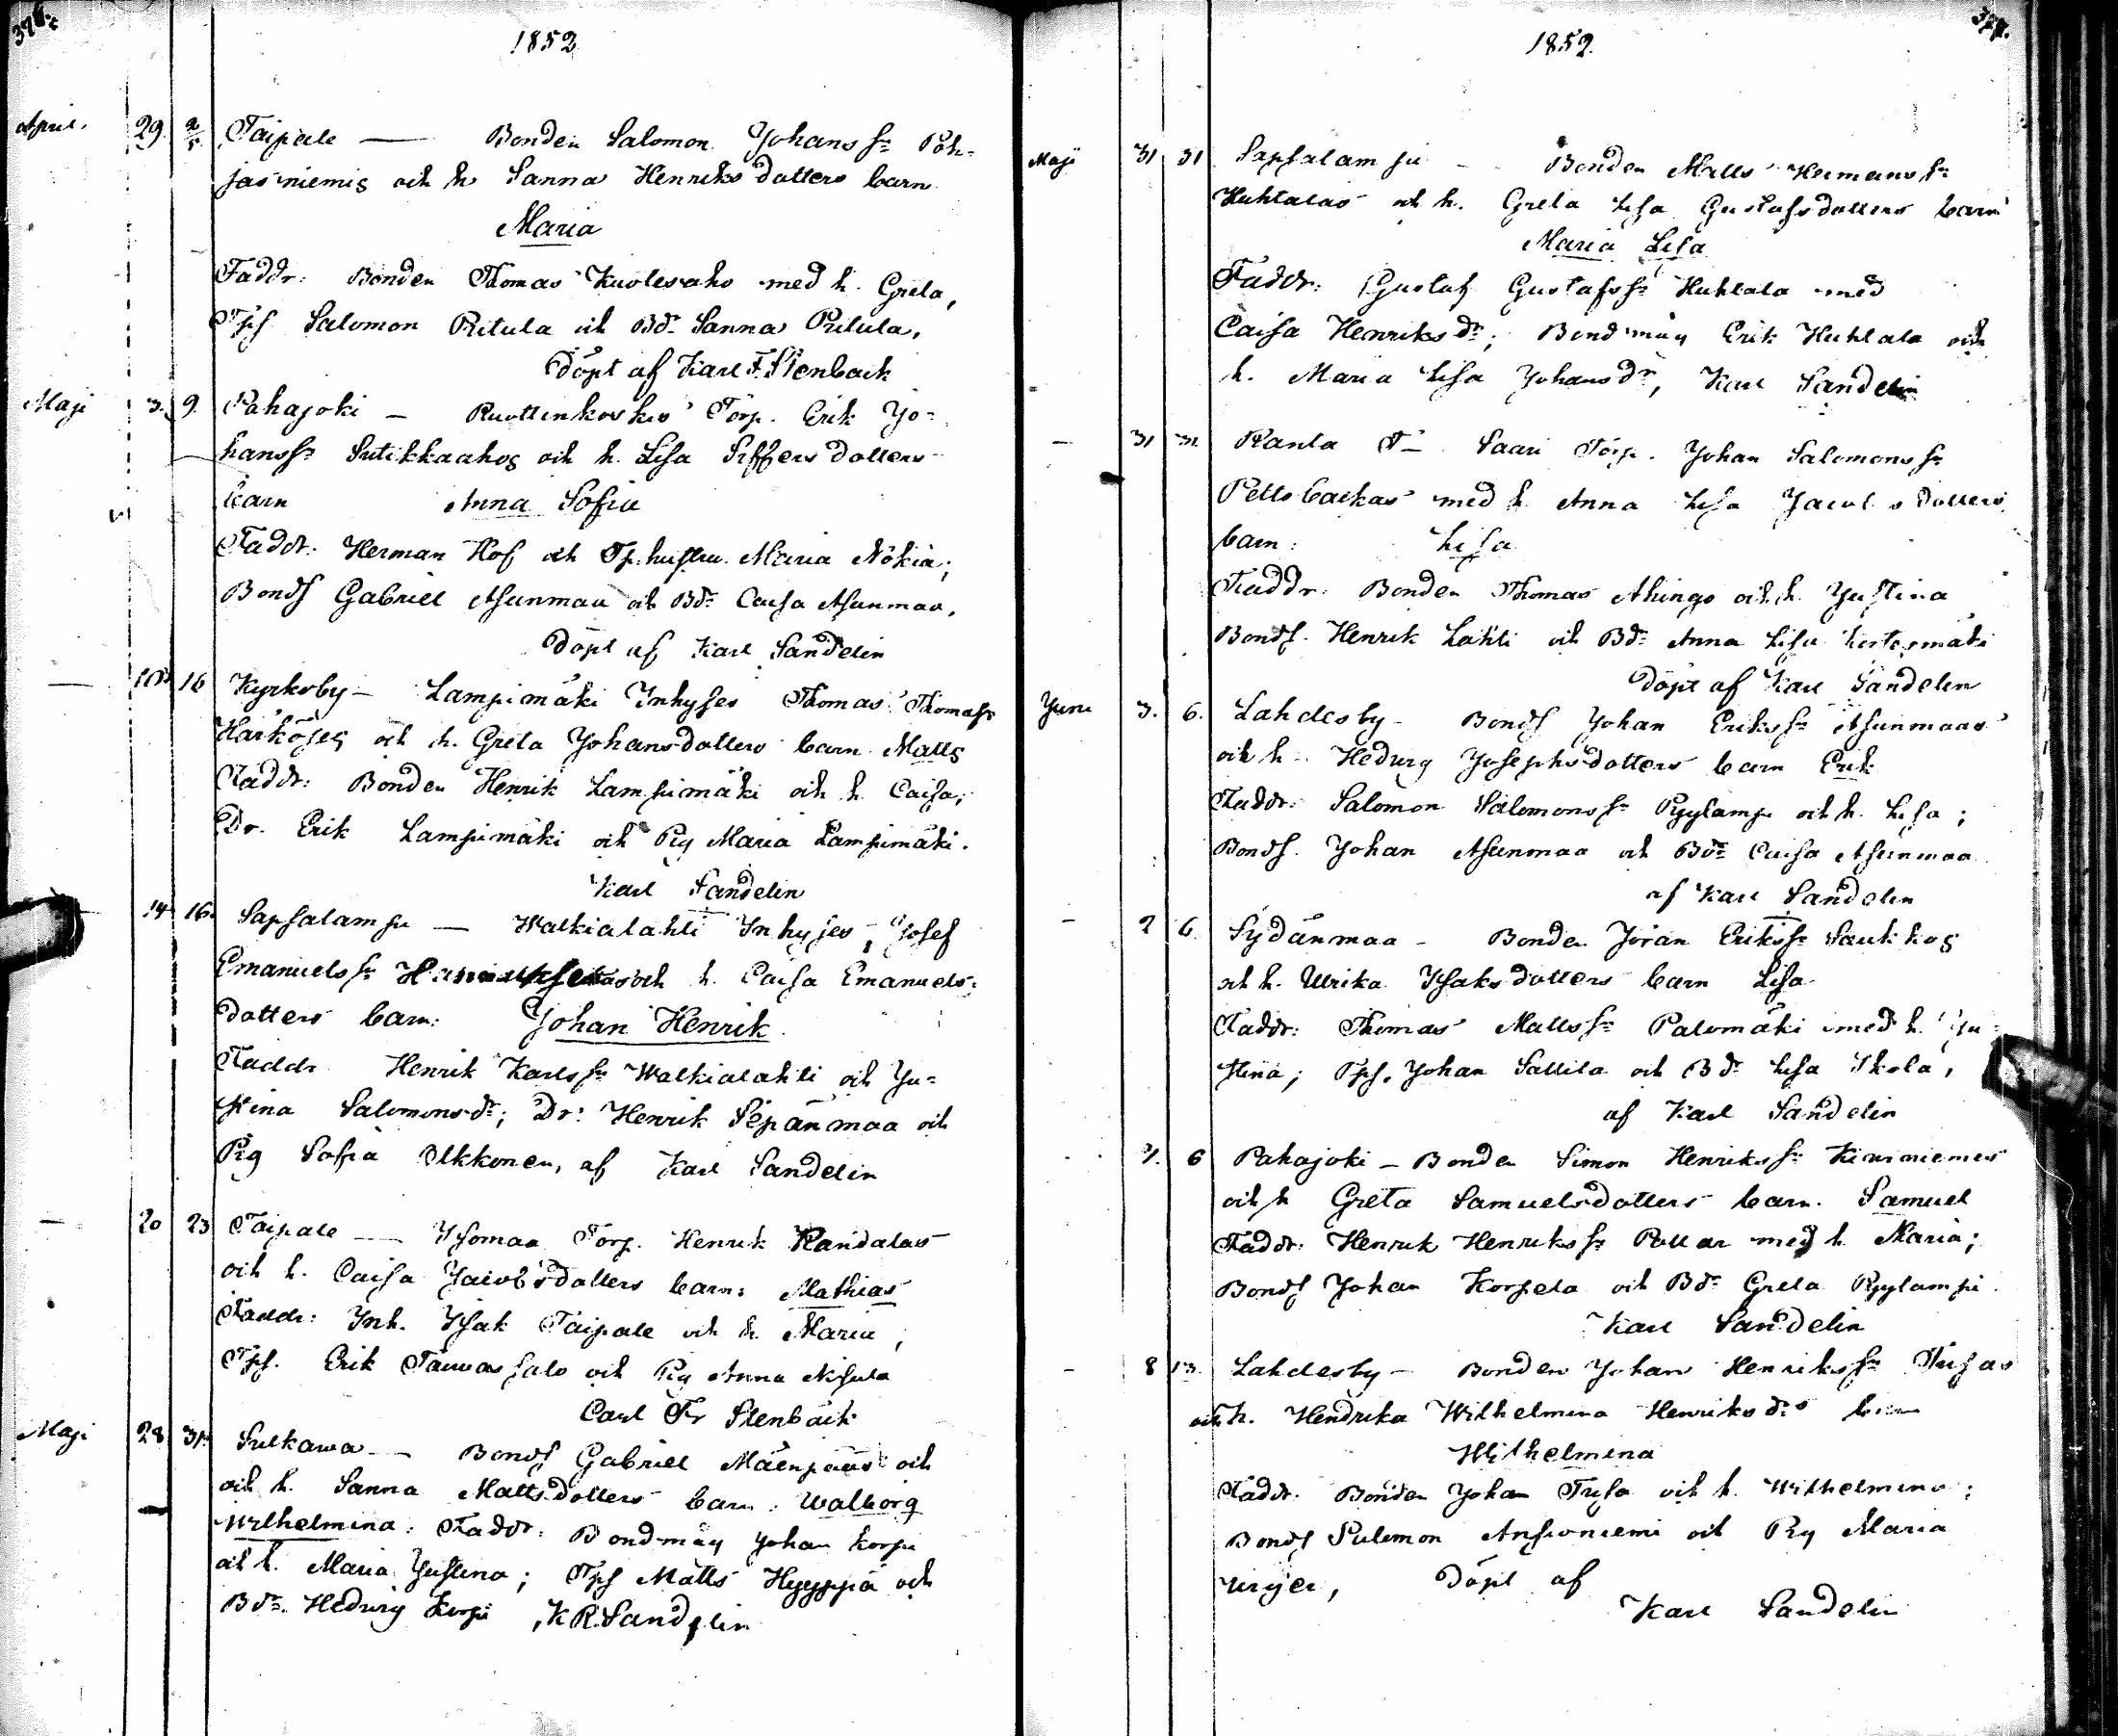 376.
1852
April. 29. 2/5 Taipale — Bonden Salomon Johans sn Poh-
jasniemis och h Sanna Henriksdotters barn
Maria
Faddr: Bonden Thomas Kuolesaho med h. Greta,
Tpf Salomon Ritula och Bdr Sanna Ritula,
Döpt af Karl F. Stenback
Maji 3. 9. Pahajoki — Ruottenkoskis Torp. Erik Jo-
hanssn Sutikkaahos och h. Lisa Siffersdotters
barn Anna Sofia
Faddr: Herman Hof och Tp. hustru Maria Nokia;
Bondf Gabriel Asunmaa och Bdr Caisa Asunmaa,
Döpt af Karl Sandelin
— 10 16 Kyrkoby — Lampimäki Inhyses Thomas Thomassn
Harköjes och h. Greta Johansdotters barn Matts
Faddr: Bonden Henrik Lampimäki och h. Caisa;
Dr. Erik Lampimäki och Pig Maria Lampimäki.
Karl Sandelin
14 16. Sapsalampi — Walkialahti Inhyses, Josef
Emanuelssn och h. Caisa Emanuels-
dotters barn: Johan Henrik
Faddr Henrik Karlssn Walkialahti och Ju-
stina Salomonsdr; Dr: Henrik Sepänmaa och
Pig Sofia Olkkonen, af Karl Sandelin
— 20 23 Taipale — Isomaa Torp. Henrik Randalas
och h. Caisa Jacobsdotters barn: Mathias
Faddr: Inh. Isak Taipale och h. Maria,
Tpf. Erik Tauvassalo och Pig Anna Nisula
Carl Fr Stenbäck
Maji 28 31. Sulkawa — Bondf Gabriel Mäenpääs och
och h. Sanna Mattsdotters barn: Walborg
Wilhelmina. Faddr: Bondmåg Johan Korpi
och h. Maria Justina; Tpf Matts Hyyppiä och
Bdr. Hedwig Korpi, K R. Sandelin
377.
1852.
Maji 31 31 Sapsalampi — Bonden Matts Hermanssn
Huhtalas och h. Greta Lisa Gustafsdotters barn
Maria Lisa
Faddr: Gustaf Gustafssn Huhtala med
Caisa Henriksdr; Bondmåg Erik Huhtala och
h. Maria Lisa Johansdr, Karl Sandelin
— 31 31. Ranta T— Saari Torp. Johan Salomonssn
Pettsbackas med h. Anna Lisa Jacobsdotters
barn: Lisa
Faddr: Bonden Thomas Ahingo och h. Justina
Bondf. Henrik Lahti och Bdr Anna Lisa
Döpt af Karl Sandelin
Juni 3. 6. Lahdesby — Bondf Johan Erikssn Asunmaas
och h. Hedwig Josephsdotters barn Erik
Faddr: Salomon Salomonssn Pyylampi och h. Lisa;
Bondf. Johan Asunmaa och Bdr Caisa Asunmaa
af Karl Sandelin
— 2 6. Sydänmaa — Bonden Jöran Erikssn Saukkos
och h. Ulrika Isaksdotters barn Lisa
Faddr: Thomas Mattssn Palomäki med h. Ju-
stina; Tpf. Johan Sallila och Bdr Lisa Skola,
af Karl Sandelin
2. 6 Pahajoki — Bonden Simon Henrikssn Kiviniemes
och h Greta Samuelsdotters barn. Samuel
Faddr: Henrik Henrikssn Pollar med h. Maria;
Bondf Johan Korpela och Bdr Greta Pyylampi.
Karl Sandelin
— 8 13. Lahdesby — Bonden Johan Henrikssn Tusas
och h. Hendrika Wilhelmina Henriksdrs barn
Wilhelmina
Faddr. Bonden Johan Tusa och h. Wilhelmina;
Bondf Salomon Ansioniemi och Pig Maria
Döpt af
Karl Sandelin